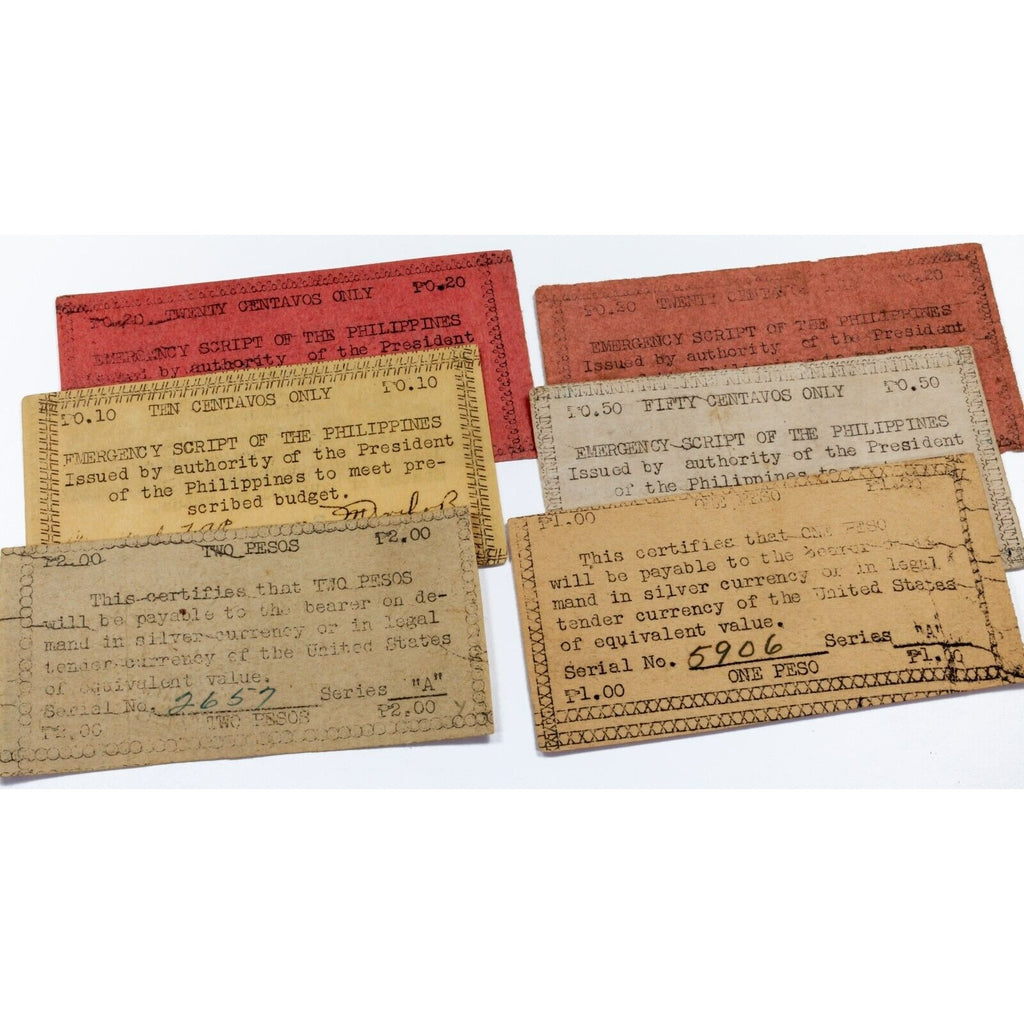 ₱0.20 TWENTY CENTAVOS ONLY ₱0.20
EMERGENCY SCRIPT OF THE PHILIPPINES
Issued by authority of the President
₱0.10 TEN CENTAVOS ONLY ₱0.10
EMERGENCY SCRIPT OF THE PHILIPPINES
Issued by authority of the President
of the Philippines to meet pre-
scribed budget.
₱2.00 TWO PESOS ₱2.00
This certifies that TWO PESOS
will be payable to the bearer on de-
mand in silver currency or in legal
tender currency of the United States
of equivalent value.
Serial No. 2657 Series "A"
₱2.00 TWO PESOS ₱2.00
₱0.20 TWENTY CENTAVOS ₱0.20
EMERGENCY SCRIPT OF THE PHILIPPINES
Issued by authority of the President
₱0.50 FIFTY CENTAVOS ONLY ₱0.50
EMERGENCY SCRIPT OF THE PHILIPPINES
Issued by authority of the President
of the Philippines to
₱1.00 ONE PESO ₱1.00
This certifies that ONE PESO
will be payable to the bearer
mand in silver currency or in legal
tender currency of the United States
of equivalent value.
Serial No. 5906 Series "A"
₱1.00 ONE PESO ₱1.00